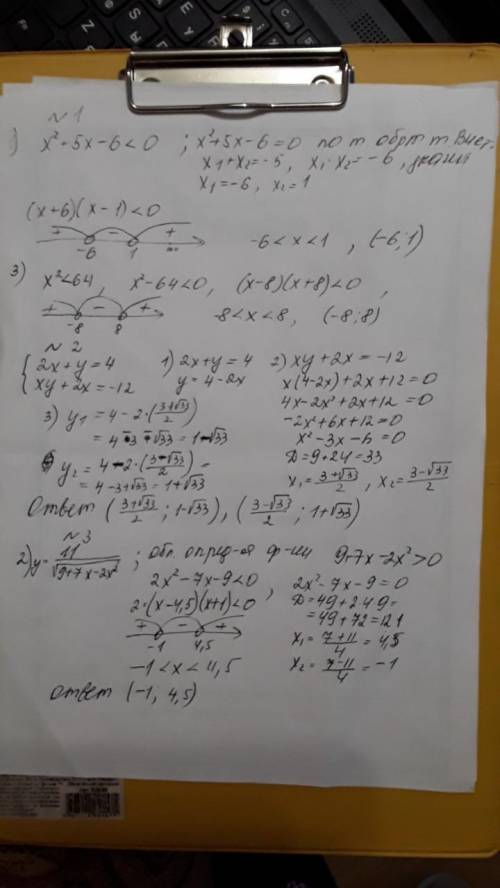 №1
1) x²+5x-6<0 ; x²+5x-6=0 по т обрт т Виет.
x1+x2=-5, x1·x2=-6,
x1=-6, x2=1
(x+6)(x-1)<0
+ - +
-6 1
-6<x<1, (-6;1)
3) x²<64, x²-64<0, (x-8)(x+8)<0,
+ - +
-8 8
-8<x<8, (-8;8)
№2
{2x+y=4
xy+2x=-12
1) 2x+y=4
y=4-2x
2) xy+2x=-12
x(4-2x)+2x+12=0
4x-2x²+2x+12=0
-2x²+6x+12=0
x²-3x-6=0
D=9+24=33
x1=(3+√33)/2, x2=(3-√33)/2
3) y1=4-2·((3+√33)/2)
=4-3-√33=1-√33
y2=4-2·((3-√33)/2)=
=4-3+√33=1+√33
Ответ ((3+√33)/2; 1-√33), ((3-√33)/2; 1+√33)
№3
2) y=11/√(9+7x-2x²); обл. опред-ая ф-ии 9+7x-2x²>0
2x²-7x-9<0,
2·(x-4,5)(x+1)<0
+ - +
-1 4,5
-1<x<4,5
2x²-7x-9=0
D=49+249=
=49+72=121
x1=(7+11)/4=4,5
x2=(7-11)/4=-1
Ответ (-1; 4,5)